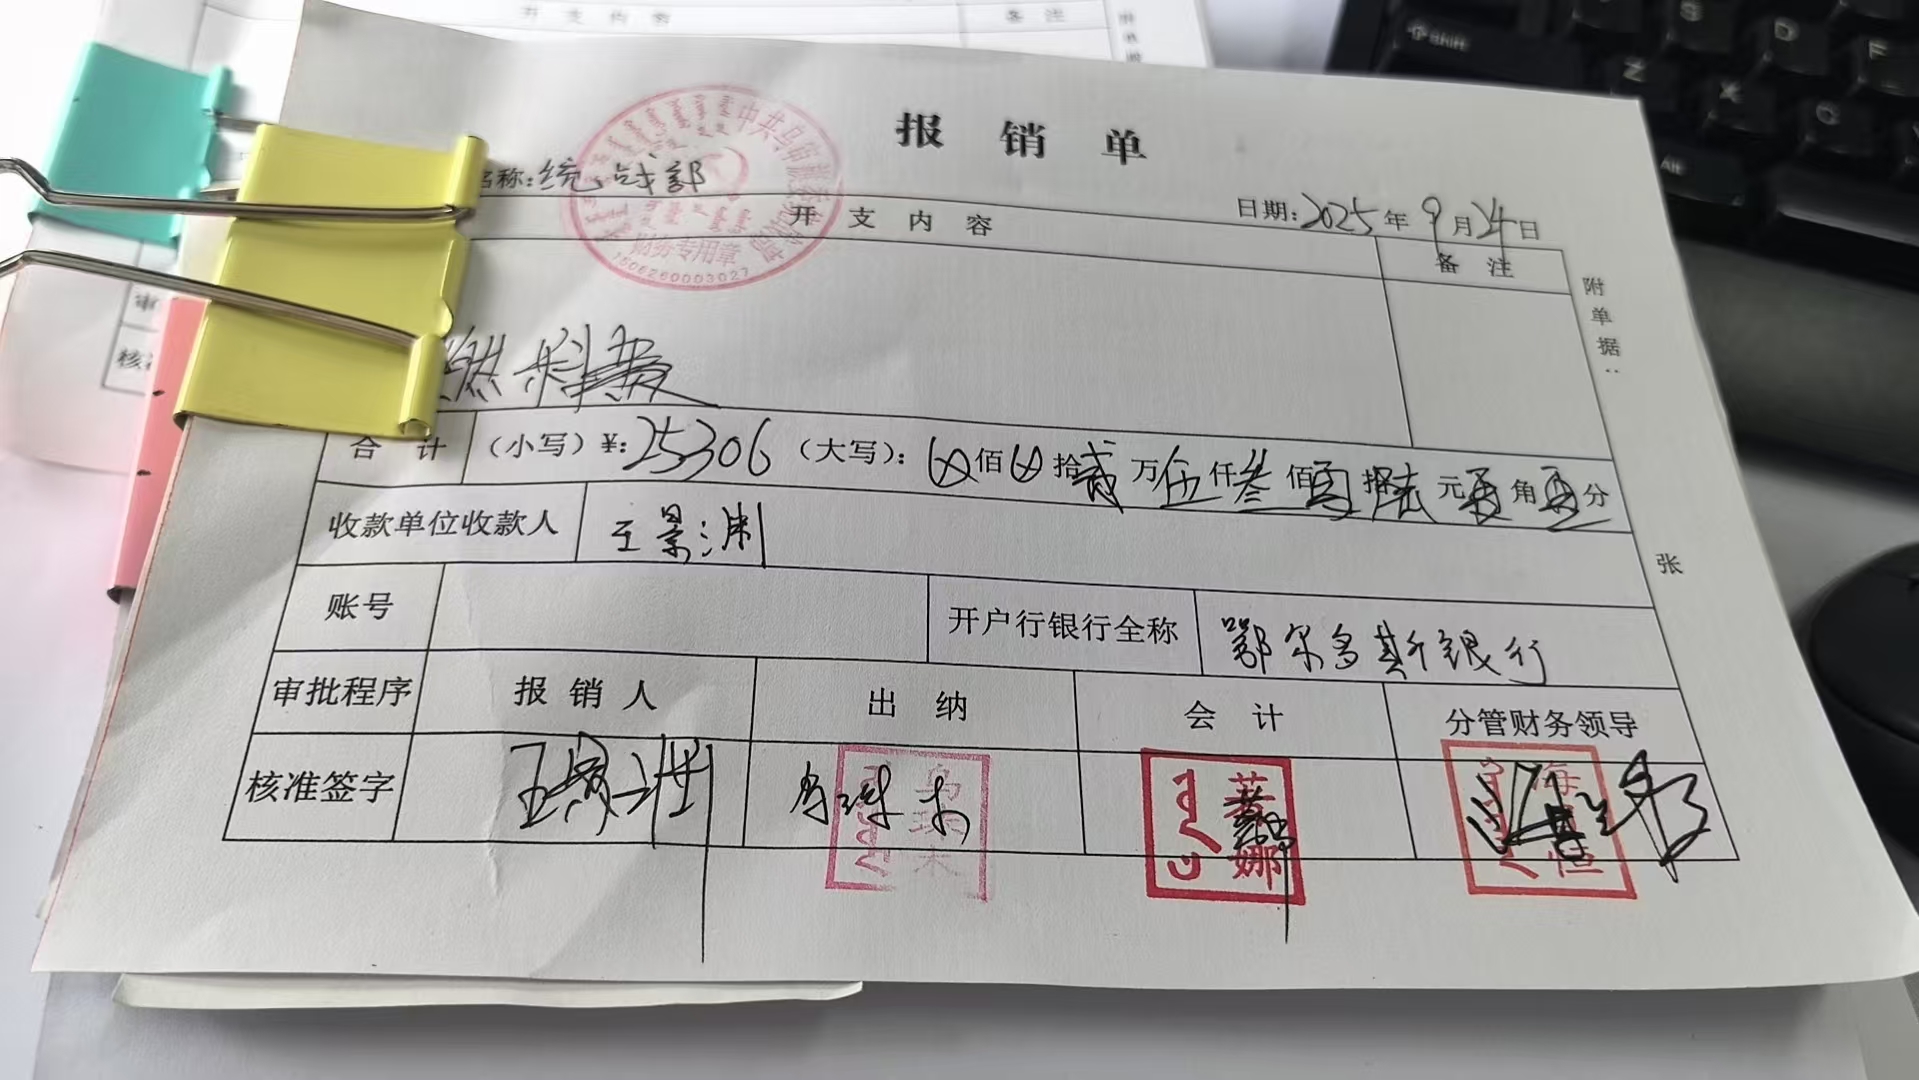 开支内容 备注
报销单
名称：统战部
日期：2025年9月24日
中共乌审旗委统战部
财务专用章
1506260003027
开支内容
备注
附单据：
张
燃料费
合计 （小写）¥：25306 （大写）：⊗佰⊗拾贰万伍仟叁佰零拾陆元零角零分
收款单位收款人 王景渊
账号
开户行银行全称 鄂尔多斯银行
审批程序 报销人 出纳 会计 分管财务领导
核准签字
乌珠木
娜
Shift
S D F
Z X C
Alt